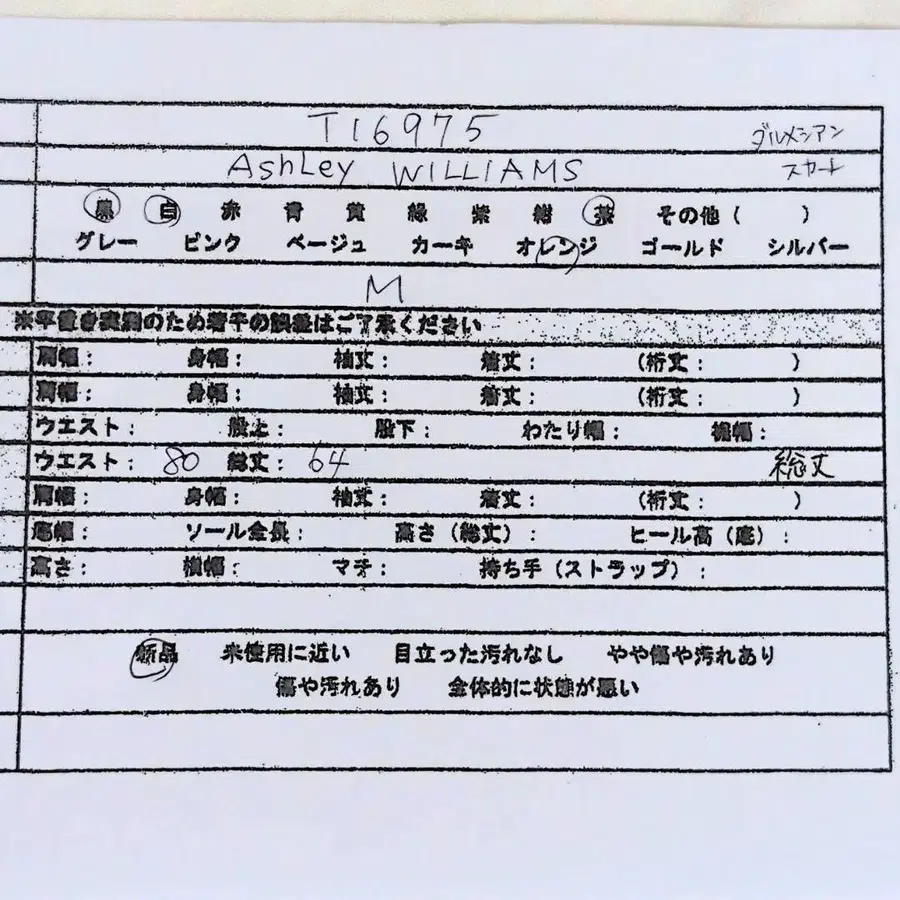 T16975 ダルメシアン
Ashley WILLIAMS スカート
黒 白 赤 青 黄 緑 紫 紺 茶 その他 ( )
グレー ピンク ベージュ カーキ オレンジ ゴールド シルバー
M
※平置き実測のため若干の誤差はご了承ください
肩幅: 身幅: 袖丈: 着丈: (裄丈: )
肩幅: 身幅: 袖丈: 着丈: (裄丈: )
ウエスト: 股上: 股下: わたり幅: 裾幅:
ウエスト: 80 総丈: 64 総丈
肩幅: 身幅: 袖丈: 着丈: (裄丈: )
底幅: ソール全長: 高さ (総丈): ヒール高 (底):
高さ: 横幅: マチ: 持ち手 (ストラップ):
新品 未使用に近い 目立った汚れなし やや傷や汚れあり
傷や汚れあり 全体的に状態が悪い